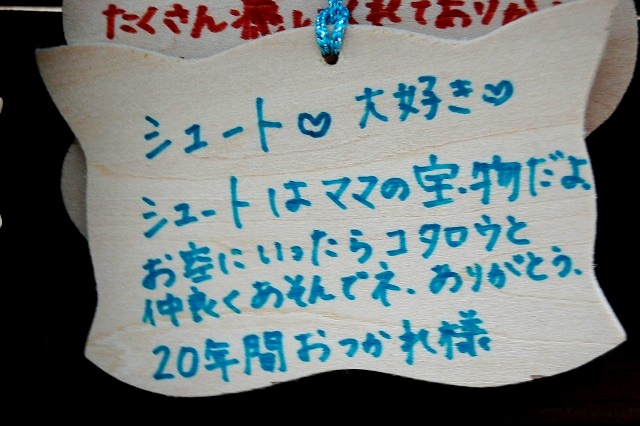 たくさん癒してくれてありが
シュート♡大好き♡
シュートはママの宝物だよ
お空にいったらコタロウと
仲良くあそんでネ、ありがとう、
20年間おつかれ様